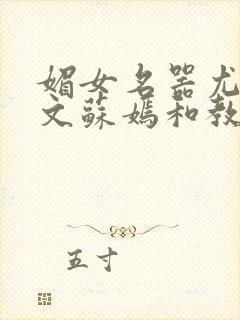 媚女名器尤
文蘇嫣和教
五寸